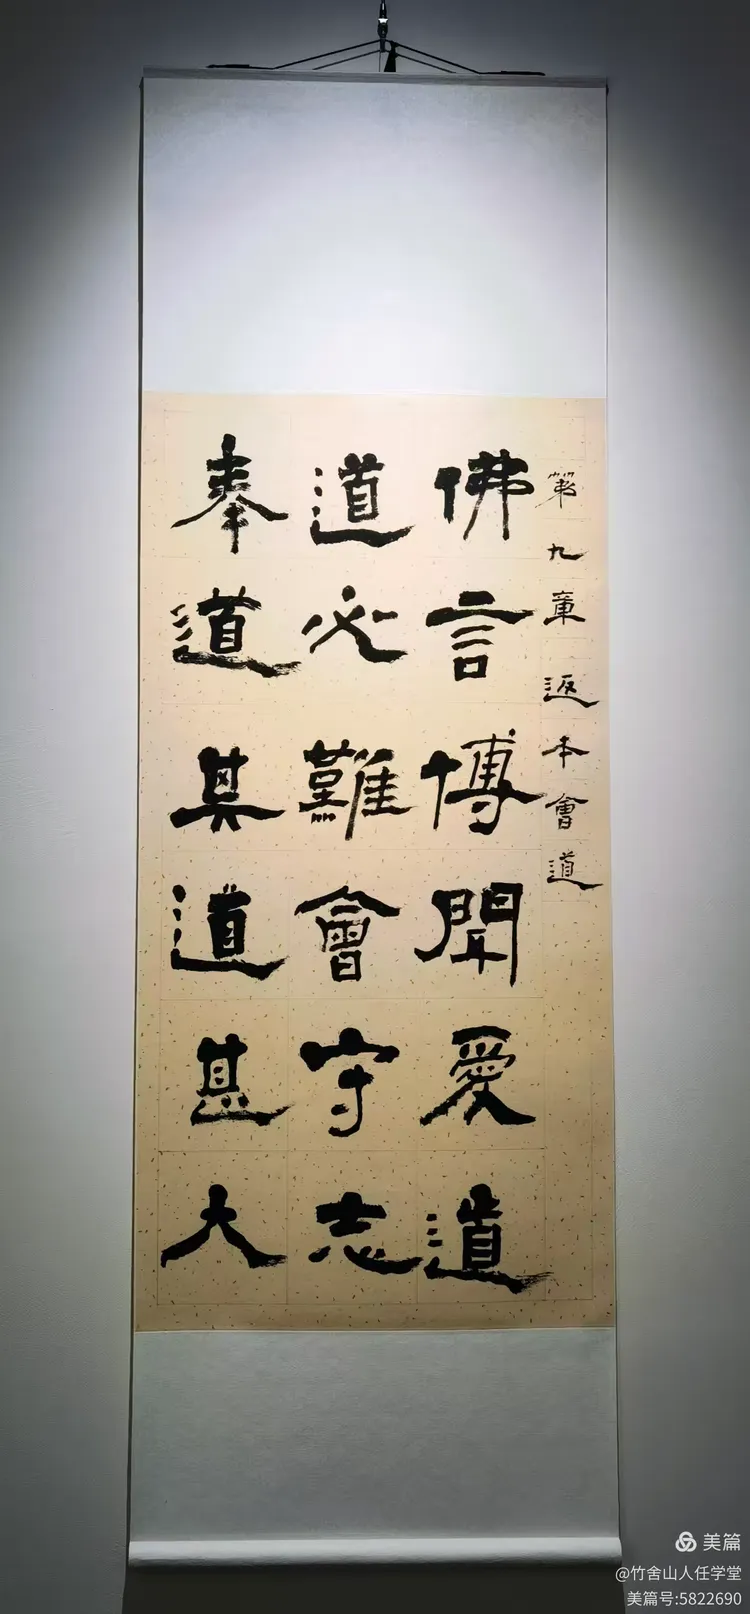 第九章返本會道
佛言博聞愛道
道必難會守志
奉道其道甚大
美篇
@竹舍山人任学堂
美篇号:5822690